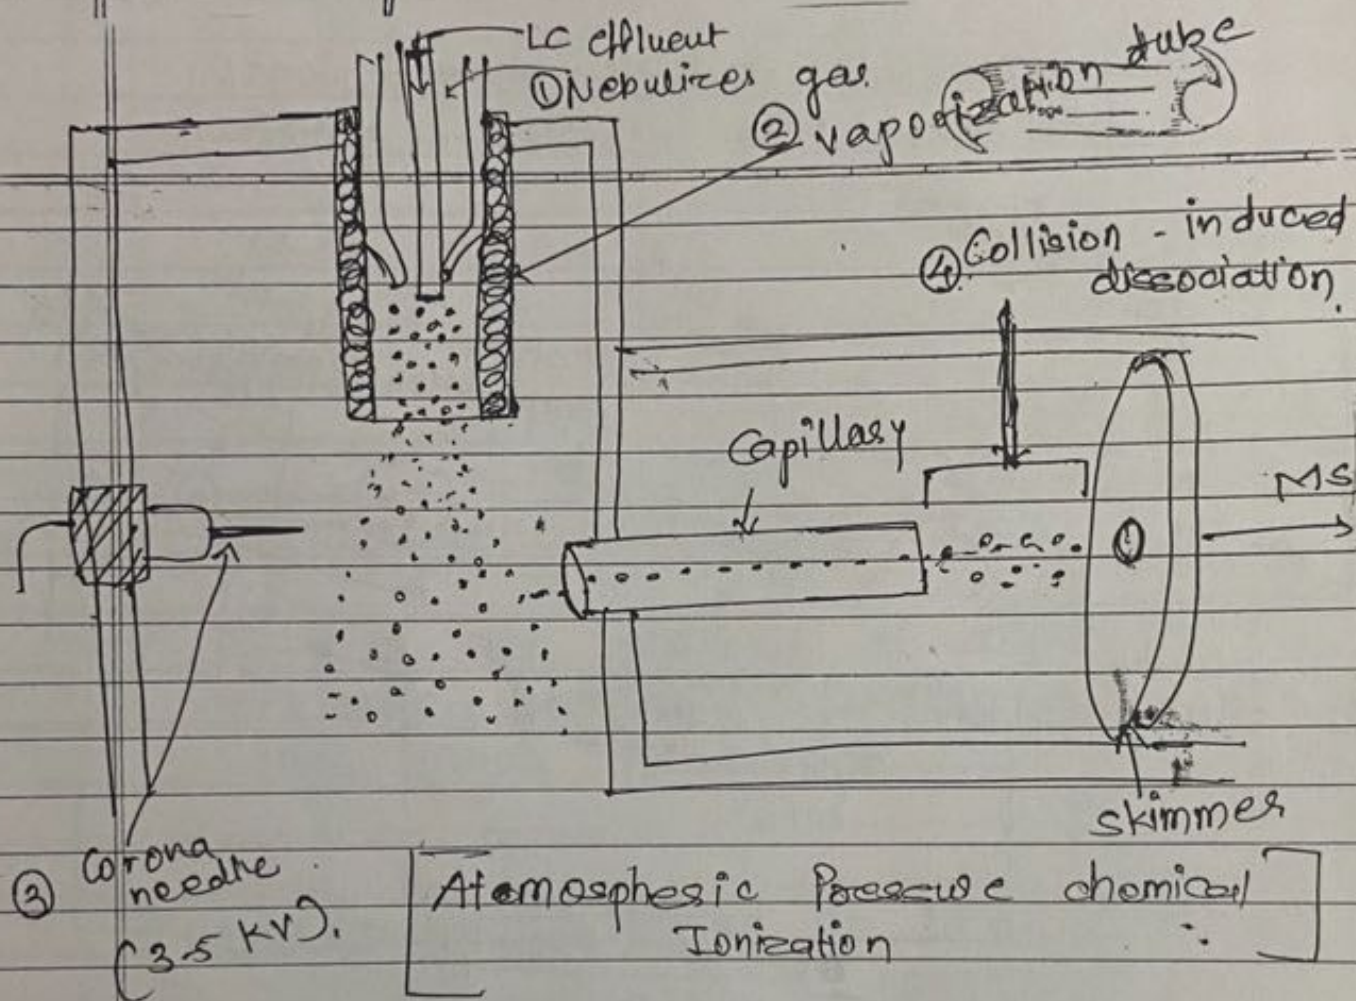 LC effluent
① Nebulizer gas
② vaporization tube
④ Collision - induced
dissociation
Capillary
MS
skimmer
③ Corona
needle
(3-5 KV).
Atomospheric Pressure chemical
Ionization